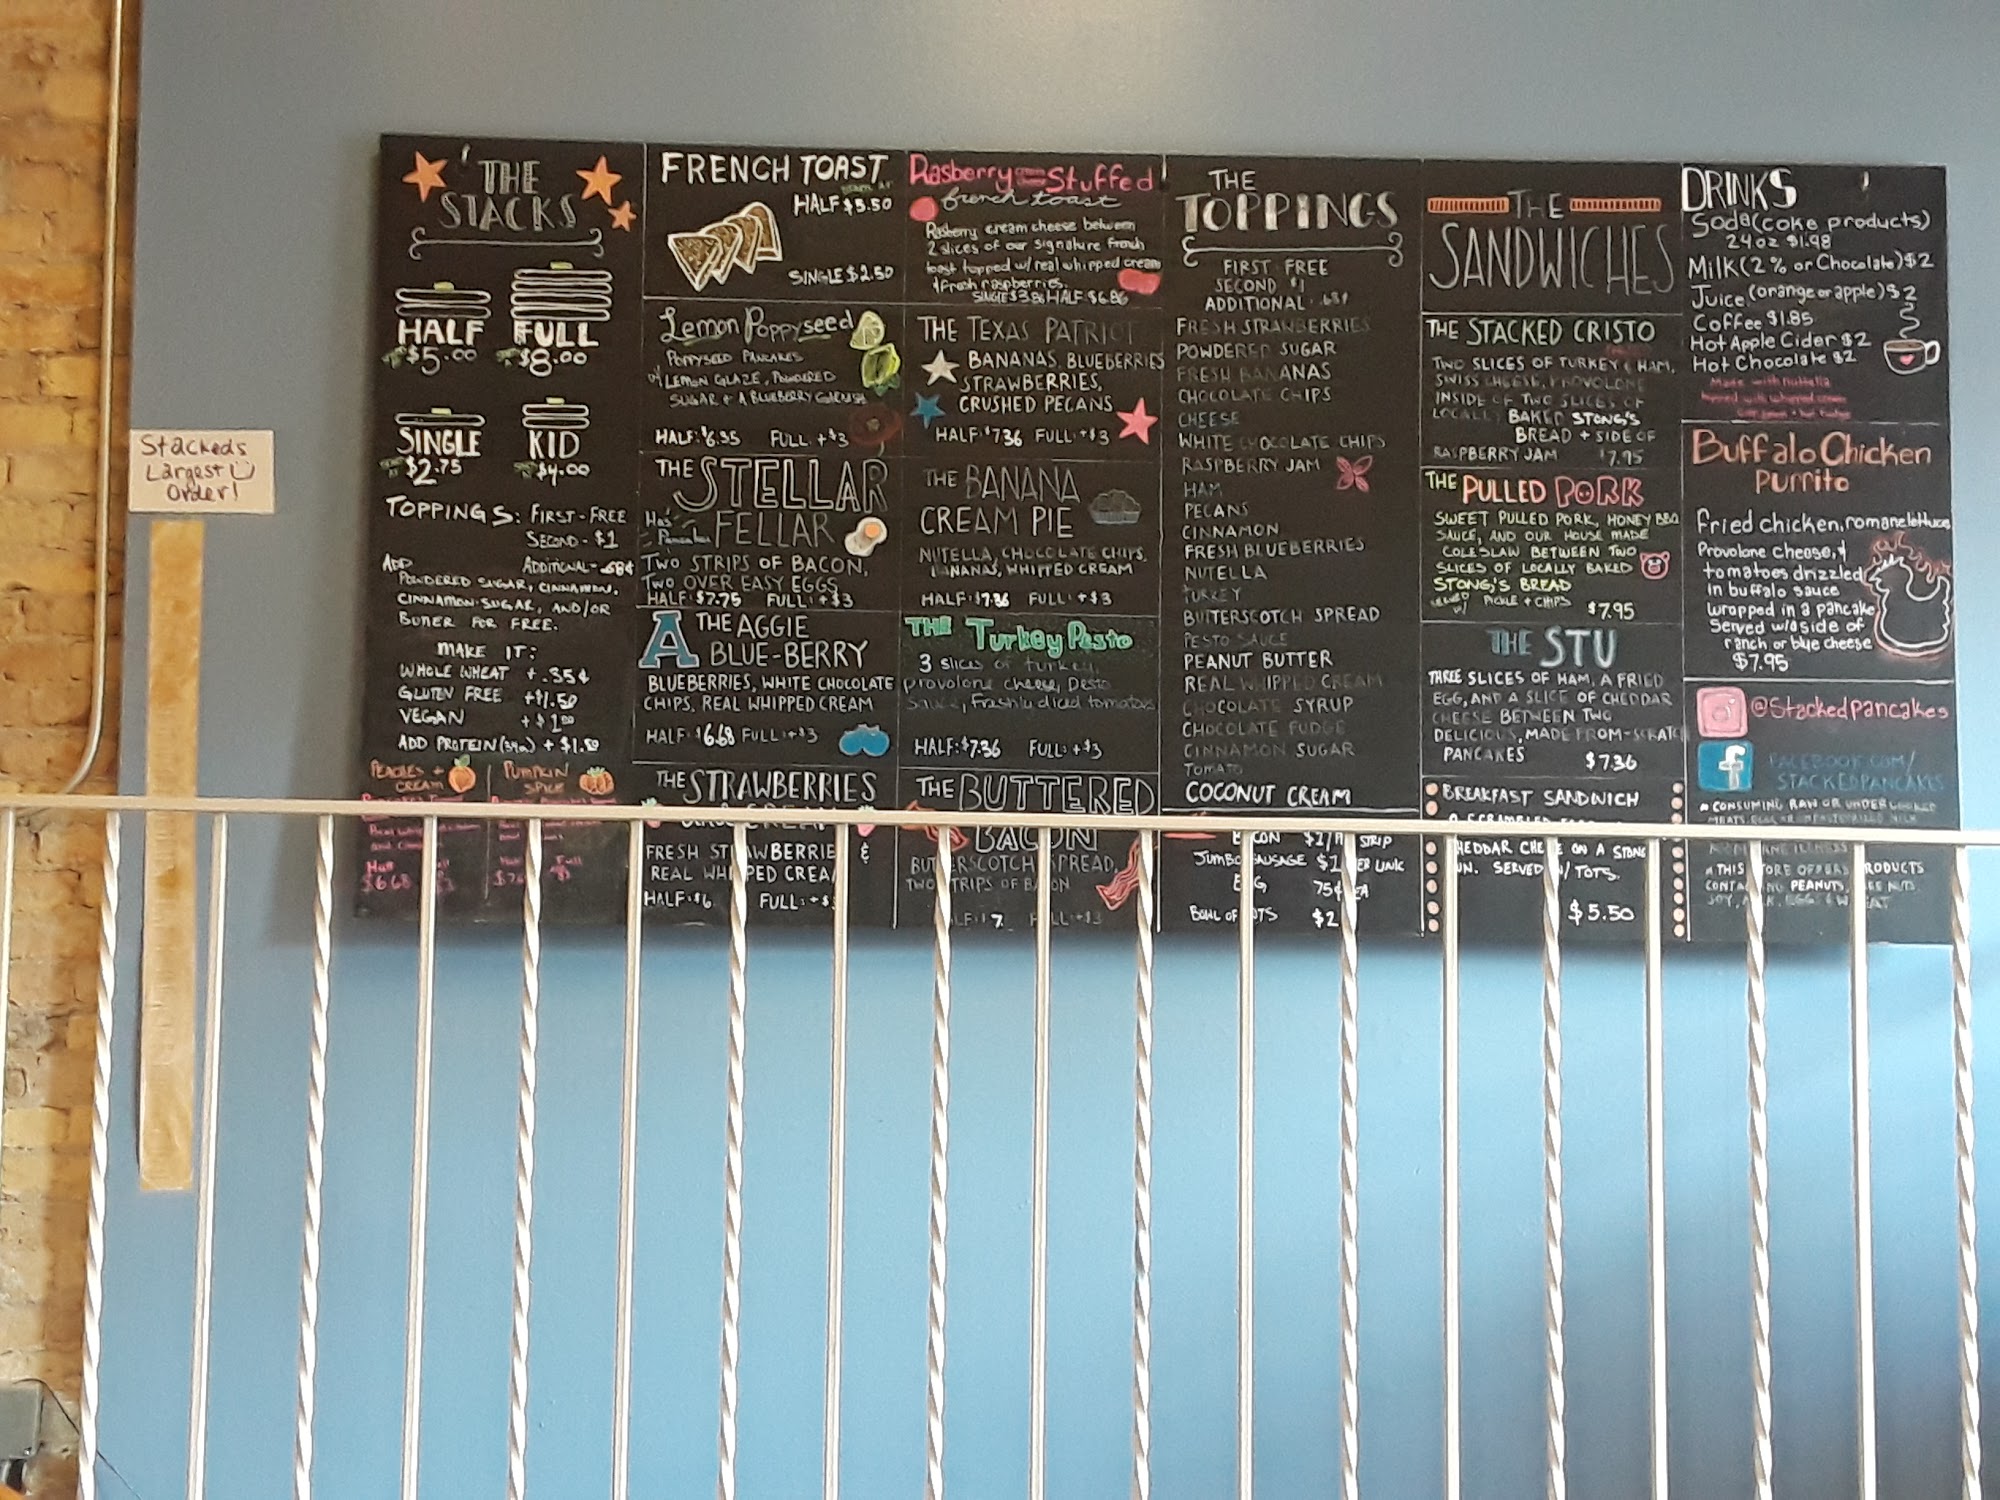 Stackeds
Largest
Order!
THE
STACKS
HALF
$5.00
FULL
$8.00
SINGLE
$2.75
KID
$4.00
TOPPINGS: FIRST-FREE
SECOND-$1
ADDITIONAL-.68¢
ADD
POWDERED SUGAR, CINNAMON,
CINNAMON SUGAR, AND/OR
BUTTER FOR FREE.
MAKE IT:
WHOLE WHEAT + .35¢
GLUTEN FREE +$1.50
VEGAN +$1.00
ADD PROTEIN +$1.50
PEACHES +
CREAM
Half
$6.68
PUMPKIN
SPICE
Full
FRENCH TOAST
HALF $5.50
SINGLE $2.50
Lemon Poppyseed
POPPYSEED PANCAKES
w/ LEMON GLAZE, POWDERED
SUGAR + A BLUEBERRY GARNISH
HALF: $6.95 FULL: +$3
THE STELLAR
FELLAR
Has
Pancakes
TWO STRIPS OF BACON,
TWO OVER EASY EGGS
HALF: $7.75 FULL: +$3
A THE AGGIE
BLUE-BERRY
BLUEBERRIES, WHITE CHOCOLATE
CHIPS, REAL WHIPPED CREAM
HALF: $6.68 FULL: +$3
THE STRAWBERRIES
FRESH STRAWBERRIES &
REAL WHIPPED CREAM
HALF: $6. FULL: +$3
Rasberry Stuffed
french toast
Rasberry cream cheese between
2 slices of our signature french
toast topped w/ real whipped cream
& fresh raspberries.
SINGLE $3.86 HALF: $6.86
THE TEXAS PATRIOT
BANANAS, BLUEBERRIES
STRAWBERRIES,
CRUSHED PECANS
HALF: $7.36 FULL: +$3
THE BANANA
CREAM PIE
NUTELLA, CHOCOLATE CHIPS,
BANANAS, WHIPPED CREAM
HALF: $7.36 FULL: +$3
THE Turkey Pesto
3 slices of turkey,
provolone cheese, Pesto
sauce, Freshly diced tomatoes
HALF: $7.36 FULL: +$3
THE BUTTERED
BACON
BUTTERSCOTCH SPREAD,
TWO STRIPS OF BACON
HALF: $7. FULL: +$3
THE
TOPPINGS
FIRST FREE
SECOND $1
ADDITIONAL .68¢
FRESH STRAWBERRIES
POWDERED SUGAR
FRESH BANANAS
CHOCOLATE CHIPS
CHEESE
WHITE CHOCOLATE CHIPS
RASPBERRY JAM
HAM
PECANS
CINNAMON
FRESH BLUEBERRIES
NUTELLA
TURKEY
BUTTERSCOTCH SPREAD
PESTO SAUCE
PEANUT BUTTER
REAL WHIPPED CREAM
CHOCOLATE SYRUP
CHOCOLATE FUDGE
CINNAMON SUGAR
TOMATO
COCONUT CREAM
BACON $2/A STRIP
JUMBO SAUSAGE $2 PER LINK
EGG 75¢ EA
BOWL OF TOTS $2
THE
SANDWICHES
THE STACKED CRISTO
TWO SLICES OF TURKEY & HAM,
SWISS CHEESE, PROVOLONE
INSIDE OF TWO SLICES OF
LOCALLY BAKED STONG'S
BREAD + SIDE OF
RASPBERRY JAM $7.95
THE PULLED PORK
SWEET PULLED PORK, HONEY BBQ
SAUCE, AND OUR HOUSE MADE
COLESLAW BETWEEN TWO
SLICES OF LOCALLY BAKED
STONG'S BREAD
SERVED W/ PICKLE + CHIPS $7.95
THE STU
THREE SLICES OF HAM, A FRIED
EGG, AND A SLICE OF CHEDDAR
CHEESE BETWEEN TWO
DELICIOUS, MADE FROM-SCRATCH
PANCAKES $7.36
BREAKFAST SANDWICH
2 SCRAMBLED EGGS
CHEDDAR CHEESE ON A STONG
BUN. SERVED W/ TOTS.
$5.50
DRINKS
Soda (coke products)
24oz $1.98
Milk (2% or Chocolate) $2
Juice (orange or apple) $2
Coffee $1.85
Hot Apple Cider $2
Hot Chocolate $2
Made with nutella
topped with whipped cream
Buffalo Chicken
Purrito
Fried chicken, romane lettuce
Provolone cheese, &
tomatoes drizzled
in buffalo sauce
wrapped in a pancake
Served w/ a side of
ranch or blue cheese
$7.95
@Stackedpancakes
f FACEBOOK.COM/
STACKEDPANCAKES
* CONSUMING RAW OR UNDERCOOKED
* THIS STORE OFFERS PRODUCTS
CONTAINING PEANUTS, TREE NUTS,
SOY, MILK, EGGS & WHEAT